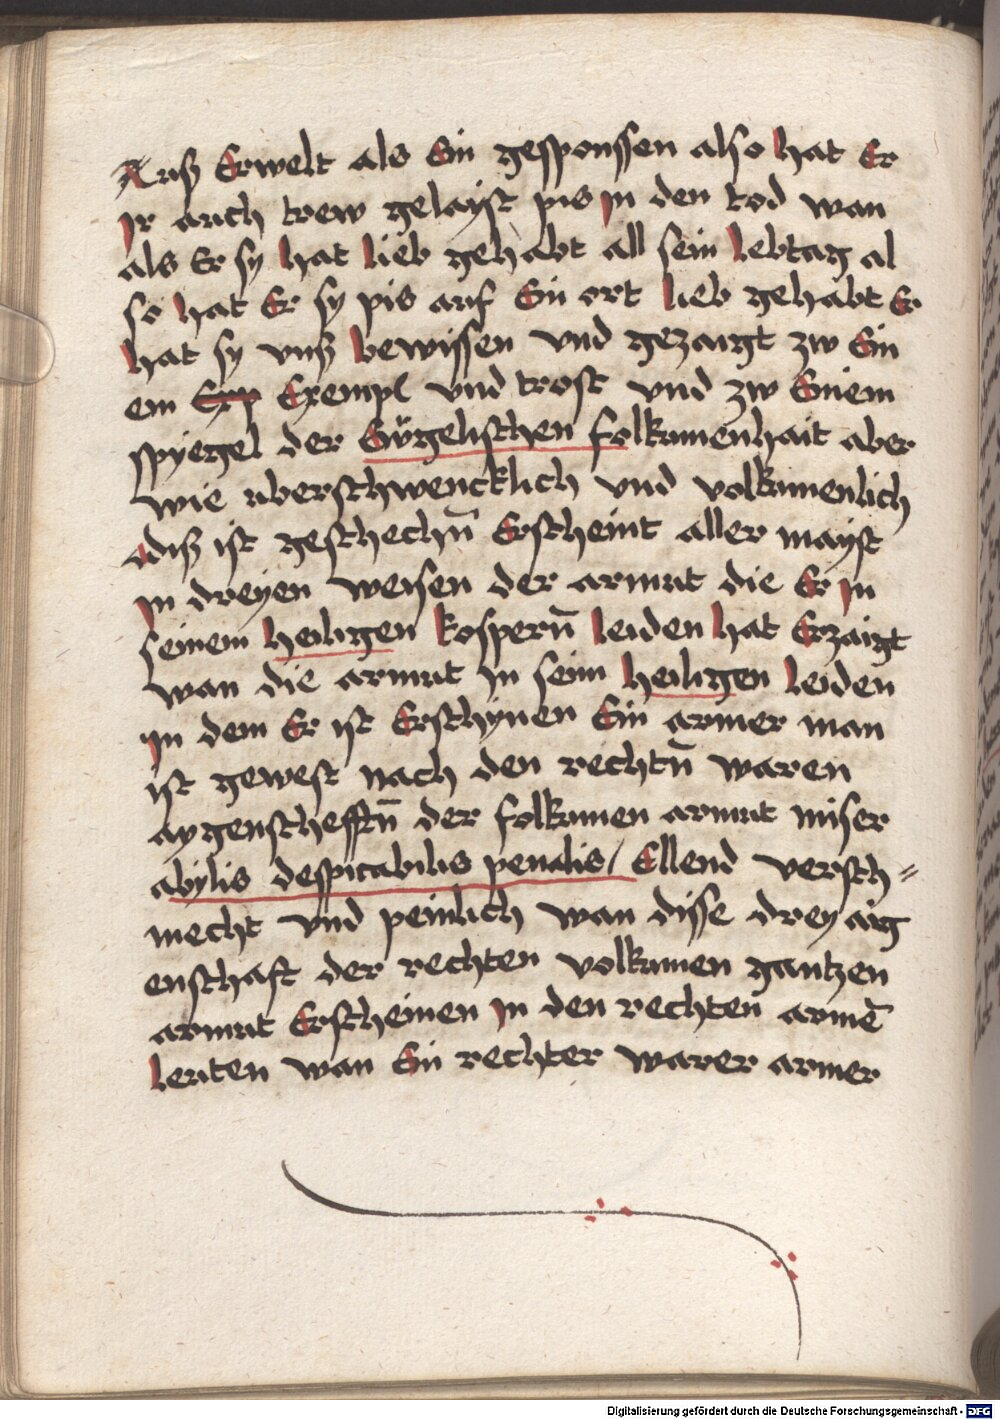 Auß Erwelt als Ein gesponssen also hat Er
Ir auch trew gelayst pis In den tod wan
als Er sy hat lieb gehabt all sein lebtag al
so hat Er sy pis auf Ein ort lieb gehabt Er
hat sy vnß bewissen vnd gezaigt zw Ein
em Exempl vnd trost vnd zw Einem
spyegel der folkumenhait aber
wie uberschwencklich vnd volkumenlich
diß ist geschechn̄ Erscheint aller mayst
In dreyen weisen der armut die Er In
seinem heiligen kospern̄ leiden hat Erzaigt
wan die armut In seim heiligen leiden
In dem Er ist Erschynen Ein armer man
ist gewest nach den rechtn̄ waren
aygenschefftn̄ der folkumen armut miser
abylis despicabilis penalis / Ellend versch=
mecht vnd peinlich wan disse drey aig
enschaft der rechten volkumen gantzen
armut Erscheinen In den rechten armē
leuten wan Ein rechter warer armer
Digitalisierung gefördert durch die Deutsche Forschungsgemeinschaft - DFG